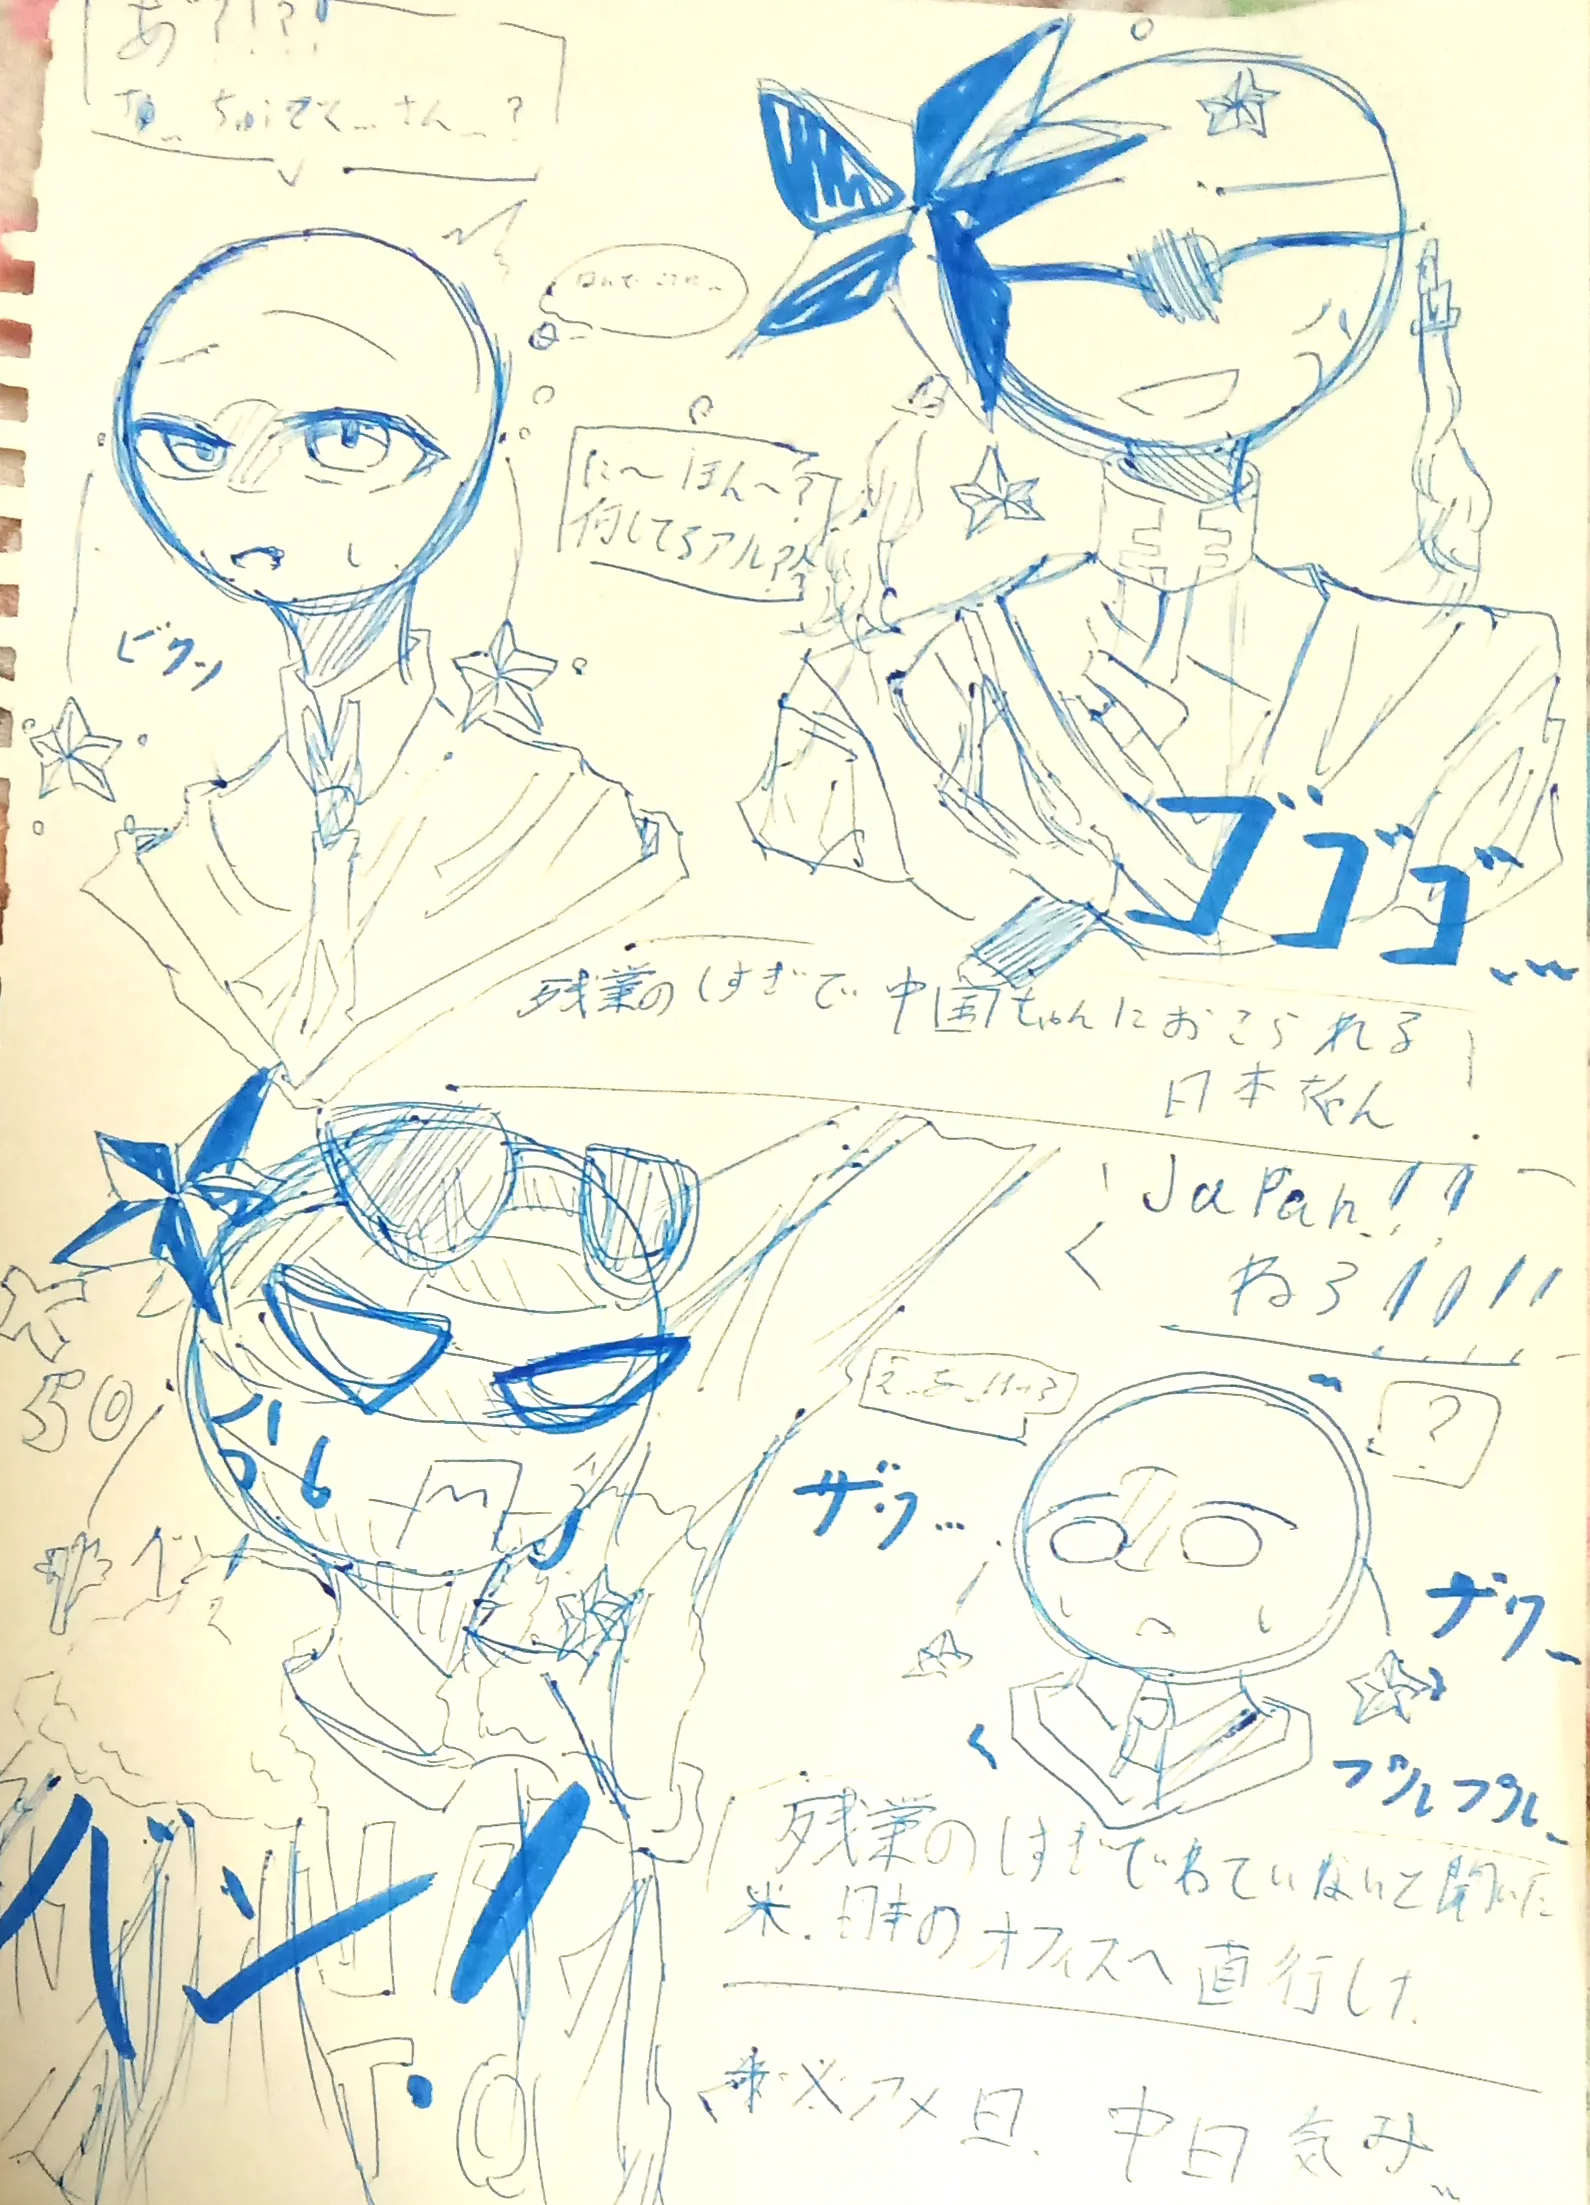 あ゛?!?!
に〜ほん〜?
何してるアル?
ビクッ
ゴゴゴ
残業のしすぎで中国ちゃんにおこられる
日本さん
Japan!!
ねろ!!!!
?
50
ザワ…
ザワ
プルプル
バン!
残業のしすぎでねていないと聞いた
米.日本のオフィスへ直行した
アメ日.中日気み